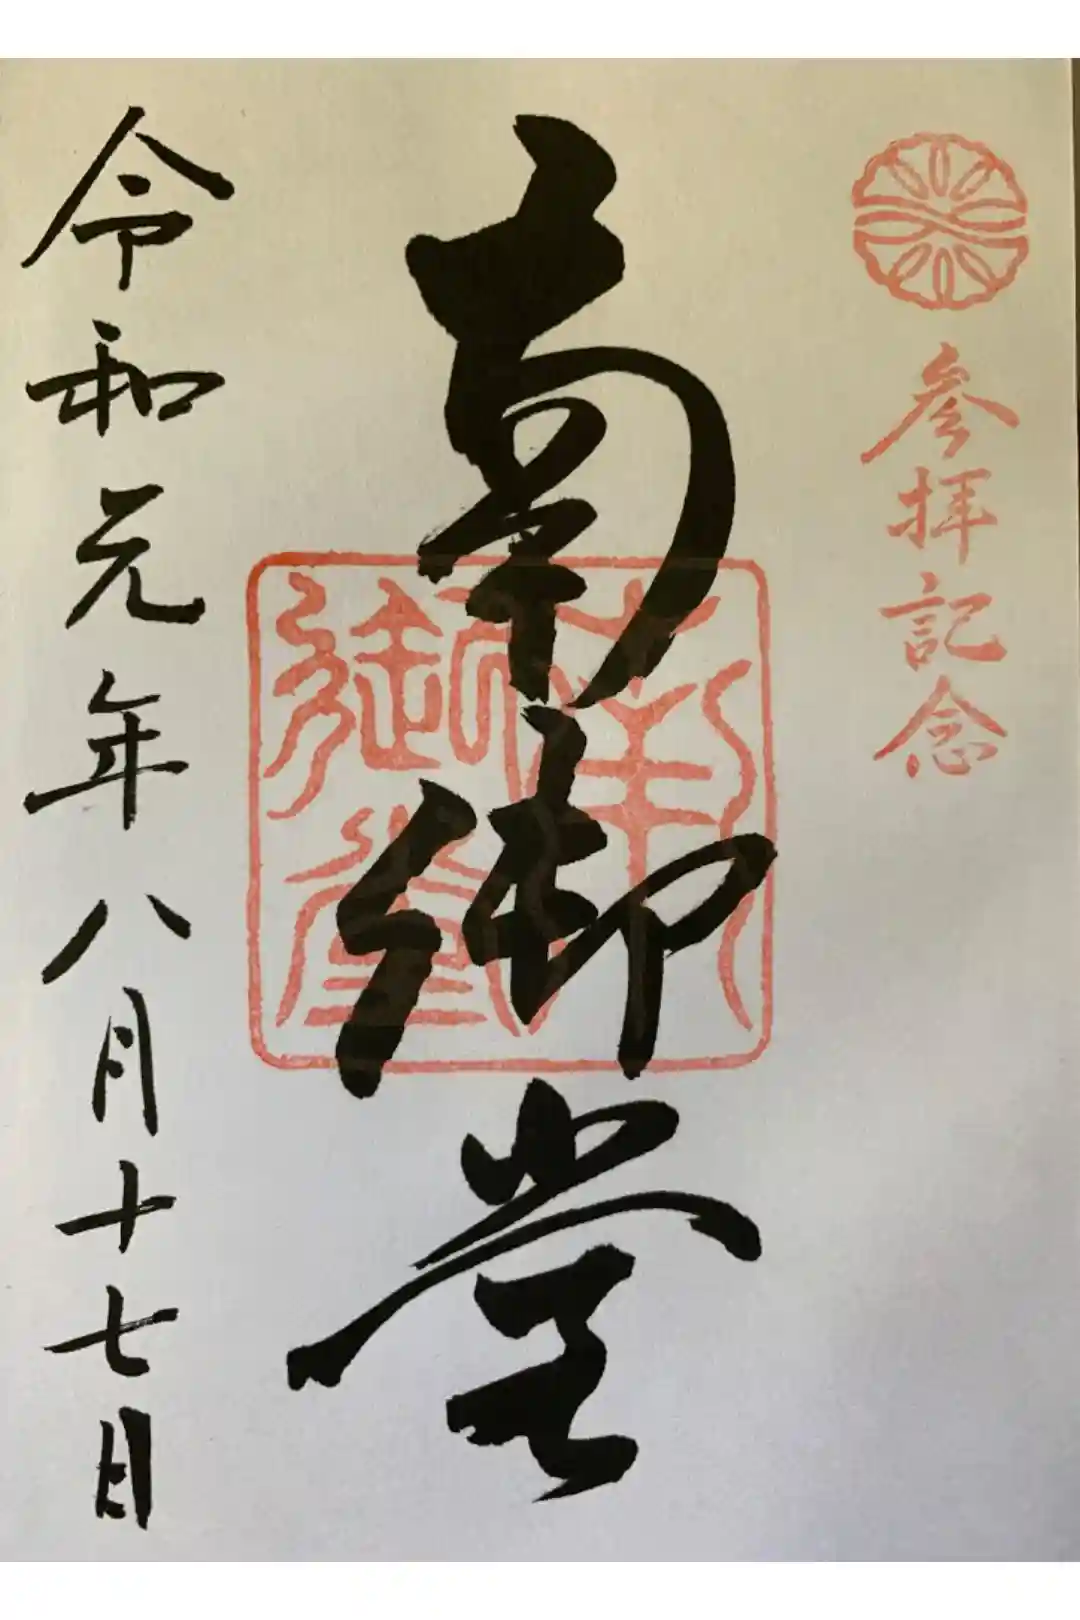 参拝記念
南御堂
南御堂
令和元年八月十七日